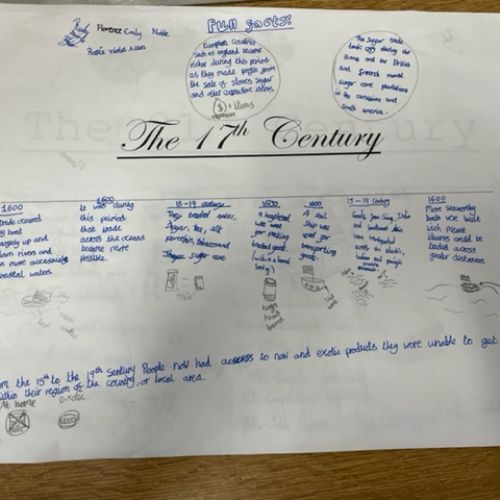 Fun facts!
Ruby
Florence Emily Noble
Rosie Violet Aileen
European Countries
such as england became
richer during this period
as they made profit from
the sale of slaves, sugar
and other expensive items.
$ = items
expensive
The sugar trade
took off during
time and the British
and french made
sugar cane plantations
in the caribbean and
South america.
The 17th Century
1600
trade occured
by boat
largely up and
down rivers and
in more accessible
coastal waters
1600
it was during
this period
that trade
across the oceans
became more
possible.
15-19 century
They traded spices,
Sugar, tea, silk
Porcelain, tobacco and
Sugar cane
1600
a hogshead
was used
for packing
traded goods.
hogs
head
barrel
1600
A sail
Ship was
used for
transporting
goods.
15-19 Century
Goods from China, India
and
were transported
across the atlantic,
indian and pacific
oceans
1600
More seaworthy
boats were built
wich meant
items could be
traded across
greater distances.
om the 15th to the 19th Sentury People now had access to new and exotic products they were unable to get
within their region of the country or local area.
At home
exotic